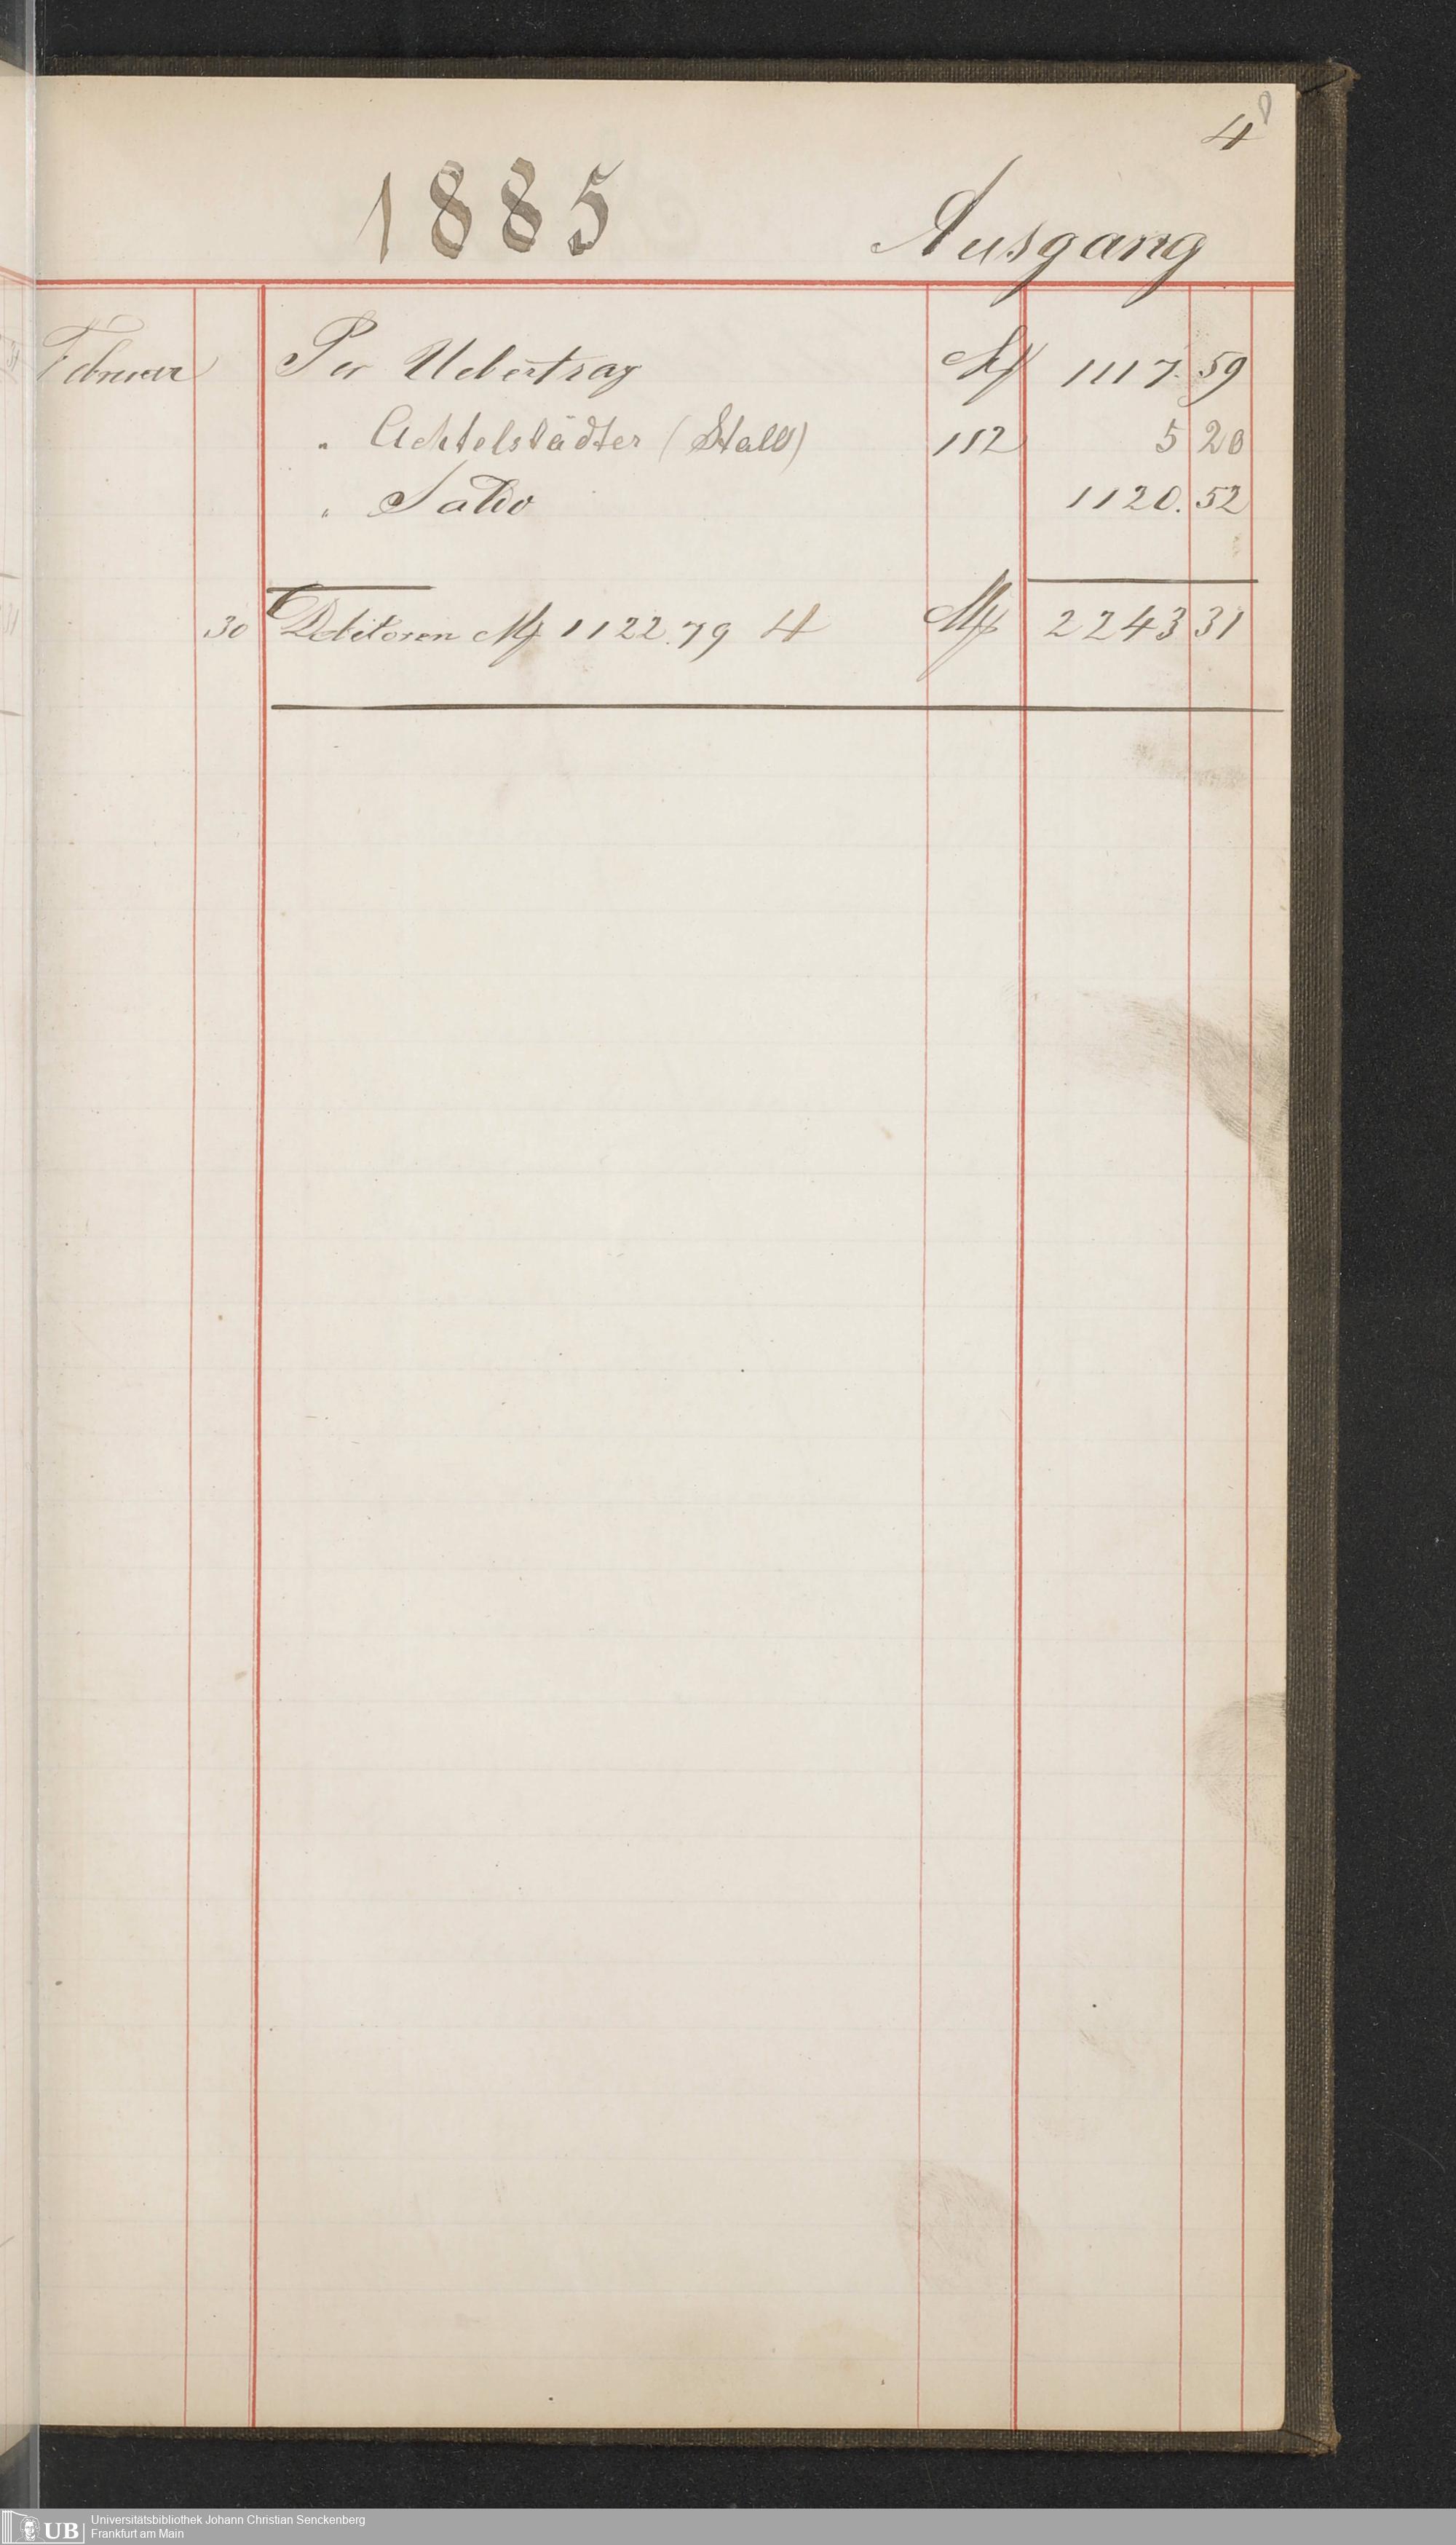 4
1885 Ausgang
Februar Per Uebertrag M 1117. 59
" Achtelstädter (Stall) 112 5 20
" Saldo 1120. 52
30 Debitoren M 1122.79 4 M 2243 31
UB Universitätsbibliothek Johann Christian Senckenberg
Frankfurt am Main